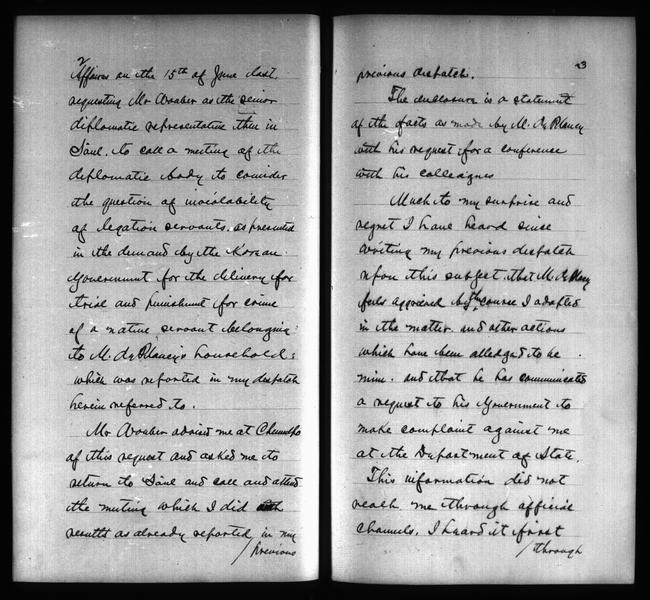 2
Affairs on the 15th of June last
requesting Mr Waeber as the senior
diplomatic representative then in
Söul. to call a meeting of the
diplomatic body to consider
the question of inviolability
of legation servants. as presented
in the demand by the Korean
Government for the delivery for
trial and punishment for crime
of a native servant belonging
to M. de Plancy's household;
which was reported in my despatch
herein referred to.
Mr Waeber advised me at Chemulpo
of this request and asked me to
return to Söul and call and attend
the meeting which I did
results as already reported in my
/ previous
3
previous despatch.
The enclosure is a statement
of the facts as made by M. de Plancy
with his request for a conference
with his colleagues
Much to my surprise and
regret I have heard since
writing my previous despatch
upon this subject that M. de Plancy
feels aggrieved by the course I adopted
in the matter. and other actions
which have been alledged to be
mine. and that he has communicated
a request to his Government to
make complaint against me
at the Department of State.
This information did not
reach me through official
channels. I heard it first
/ through